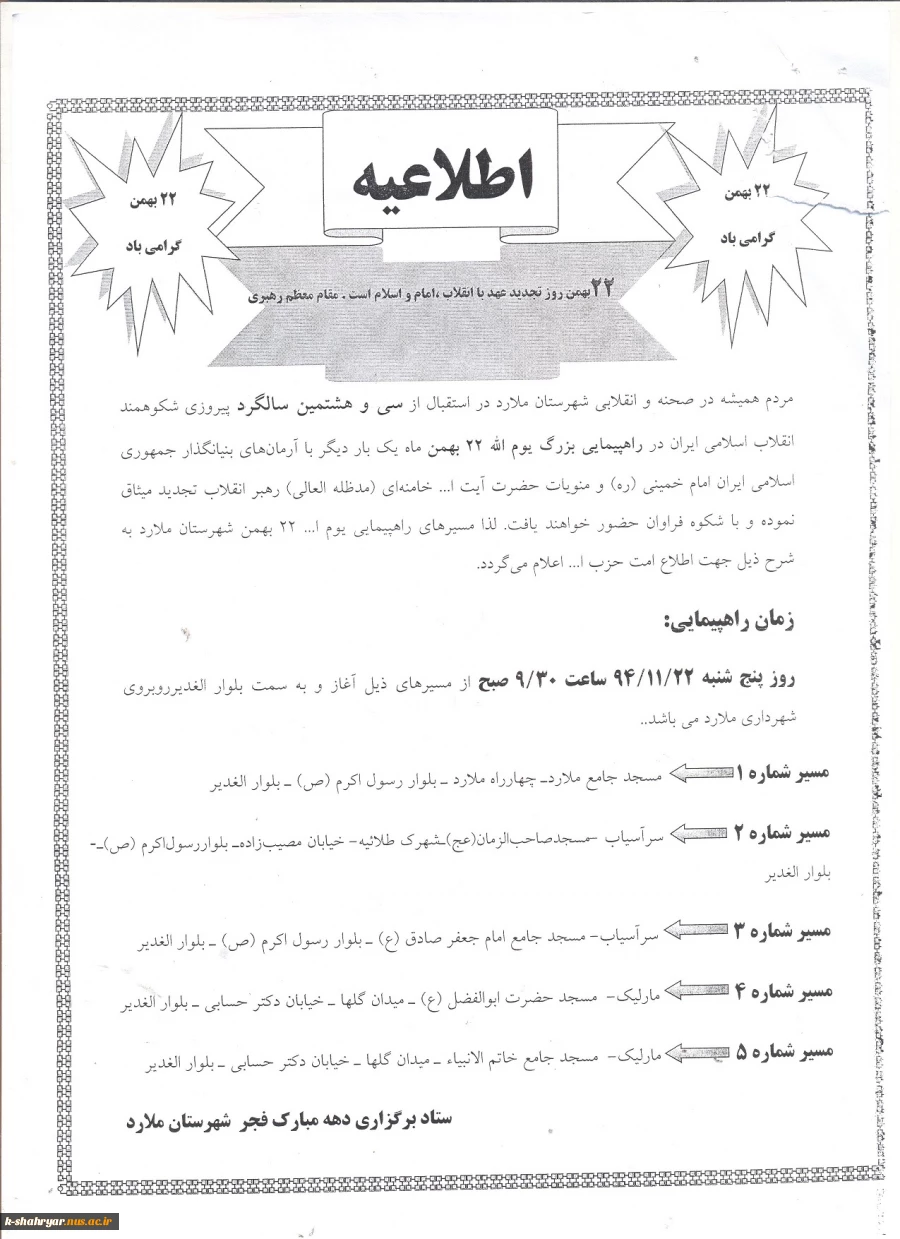 اطلاعیه
۲۲ بهمن
گرامی باد
۲۲ بهمن
گرامی باد
۲۲بهمن روز تجدید عهد با انقلاب ،امام و اسلام است . مقام معظم رهبری
مردم همیشه در صحنه و انقلابی شهرستان ملارد در استقبال از سی و هشتمین سالگرد پیروزی شکوهمند
انقلاب اسلامی ایران در راهپیمایی بزرگ یوم الله ۲۲ بهمن ماه یک بار دیگر با آرمان‌های بنیانگذار جمهوری
اسلامی ایران امام خمینی (ره) و منویات حضرت آیت ا... خامنه‌ای (مدظله العالی) رهبر انقلاب تجدید میثاق
نموده و با شکوه فراوان حضور خواهند یافت. لذا مسیرهای راهپیمایی یوم ا... ۲۲ بهمن شهرستان ملارد به
شرح ذیل جهت اطلاع امت حزب ا... اعلام می‌گردد.
زمان راهپیمایی:
روز پنج شنبه ۹۴/۱۱/۲۲ ساعت ۹/۳۰ صبح از مسیرهای ذیل آغاز و به سمت بلوار الغدیرروبروی
شهرداری ملارد می باشد..
مسیر شماره ۱ مسجد جامع ملارد_ چهارراه ملارد _ بلوار رسول اکرم (ص) _ بلوار الغدیر
مسیر شماره ۲ سرآسیاب -مسجدصاحب‌الزمان(عج)_شهرک طلائیه- خیابان مصیب‌زاده_ بلواررسول‌اکرم (ص)_-
بلوار الغدیر
مسیر شماره ۳ سرآسیاب- مسجد جامع امام جعفر صادق (ع) _ بلوار رسول اکرم (ص) _ بلوار الغدیر
مسیر شماره ۴ مارلیک- مسجد حضرت ابوالفضل (ع) _ میدان گلها _ خیابان دکتر حسابی _ بلوار الغدیر
مسیر شماره ۵ مارلیک- مسجد جامع خاتم الانبیاء _ میدان گلها _ خیابان دکتر حسابی _ بلوار الغدیر
ستاد برگزاری دهه مبارک فجر شهرستان ملارد
k-shahryar.nus.ac.ir